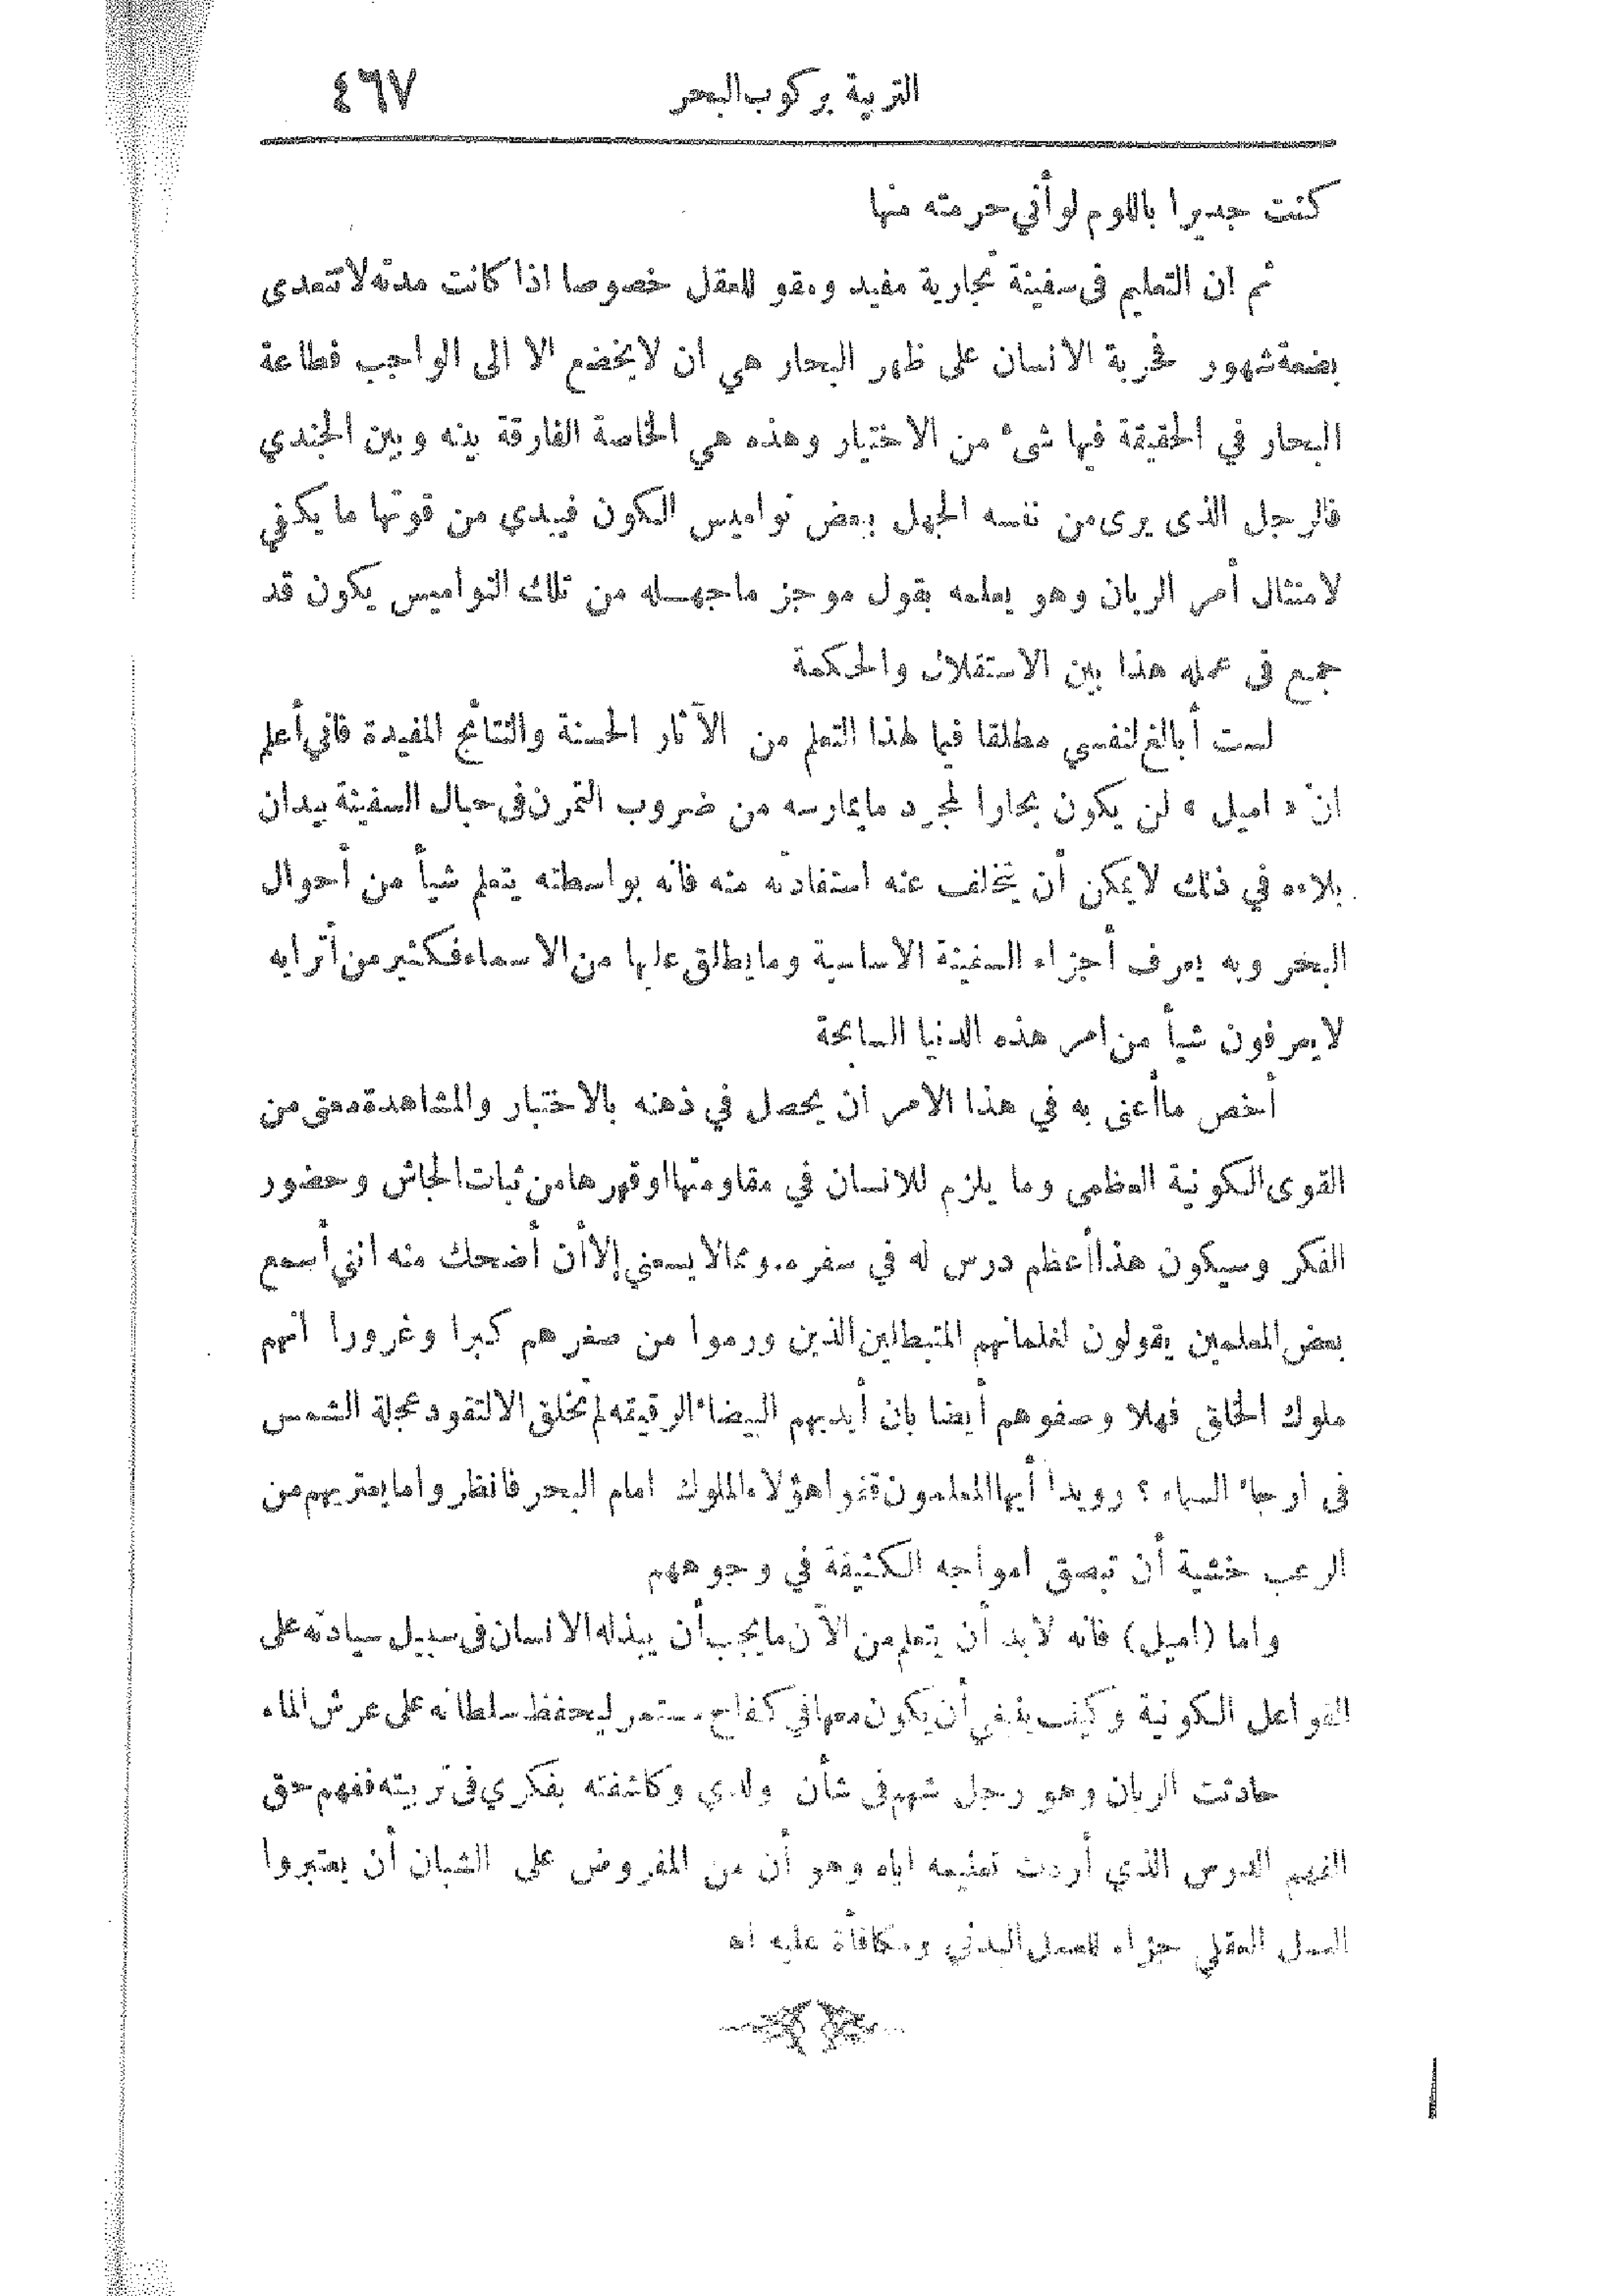 التربية بركوب البحر ٤٦٧
كنت جديرا باللوم لو أني حرمته منها
ثم ان التعليم في سفينة تجارية مفيد ومقو للعقل خصوصا اذا كانت مدته لا تتعدى
بضعة شهور فحرية الانسان على ظهر البحار هي ان لا يخضع الا الى الواجب فطاعة
البحار في الحقيقة فيها شيء من الاختيار وهذه هي الخاصة الفارقة بينه وبين الجندي
فالرجل الذى يرى من نفسه الجهل ببعض نواميس الكون فيبدي من قوتها ما يكفي
لامتثال أمر الربان وهو يعلمه بقول موجز ما جهله من تلك النواميس يكون قد
جمع في عمله هذا بين الاستقلال والحكمة
لست أبالغ لنفسي مطلقا فيما لهذا التعلم من الآثار الحسنة والنتائج المفيدة فاني أعلم
ان « اميل » لن يكون بحارا لمجرد ما يمارسه من ضروب التمرن في حبال السفينة بيد ان
بلاءه في ذلك لا يمكن أن يتخلف عنه استفادته منه فانه بواسطته يتعلم شيأ من أحوال
البحر وبه يعرف أجزاء السفينة الاساسية وما يطلق عليها من الاسماء فكثير من أترابه
لا يعرفون شيأ من امر هذه الدنيا السابحة
أخص ما أعنى به في هذا الامر ان يحصل في ذهنه بالاختبار والمشاهدة معنى من
القوى الكونية العظمى وما يلزم للانسان في مقاومتها او قهرها من ثبات الجاش وحضور
الفكر وسيكون هذا أعظم درس له في سفره. ومما لا يسعني إلا أن أضحك منه انني أسمع
بعض المعلمين يقولون لغلمانهم المتبطلين الذين ورموا من صغرهم كبرا وغرورا انهم
ملوك الخلق فهلا وصفوهم أيضا بان أيديهم البيضاء الرقيقه لم تخلق الا لتقود عجلة الشمس
في ارجاء السماء ؟ رويدا أيها المعلمون قفوا هؤلاء الملوك امام البحر فانظروا ما يعتريهم من
الرعب خشية أن تبصق امواجه الكثيفة في وجوههم
واما (اميل) فانه لابد أن يتعلم من الآن ما يجب أن يبذله الانسان في سبيل سيادته على
الفواعل الكونية وكيف ينبغي أن يكون معها في كفاح مستمر ليحفظ سلطانه على عرش الماء
حادثت الربان وهو رجل شهم في شأن ولدي وكاشفته بفكري في تربيته ففهم حق
الفهم الدرس الذي أردت تعليمه اياه وهو أن من المفروض على الشبان أن يعتبروا
العمل العقلي جزاء للعمل البدني ومكافأة عليه اه